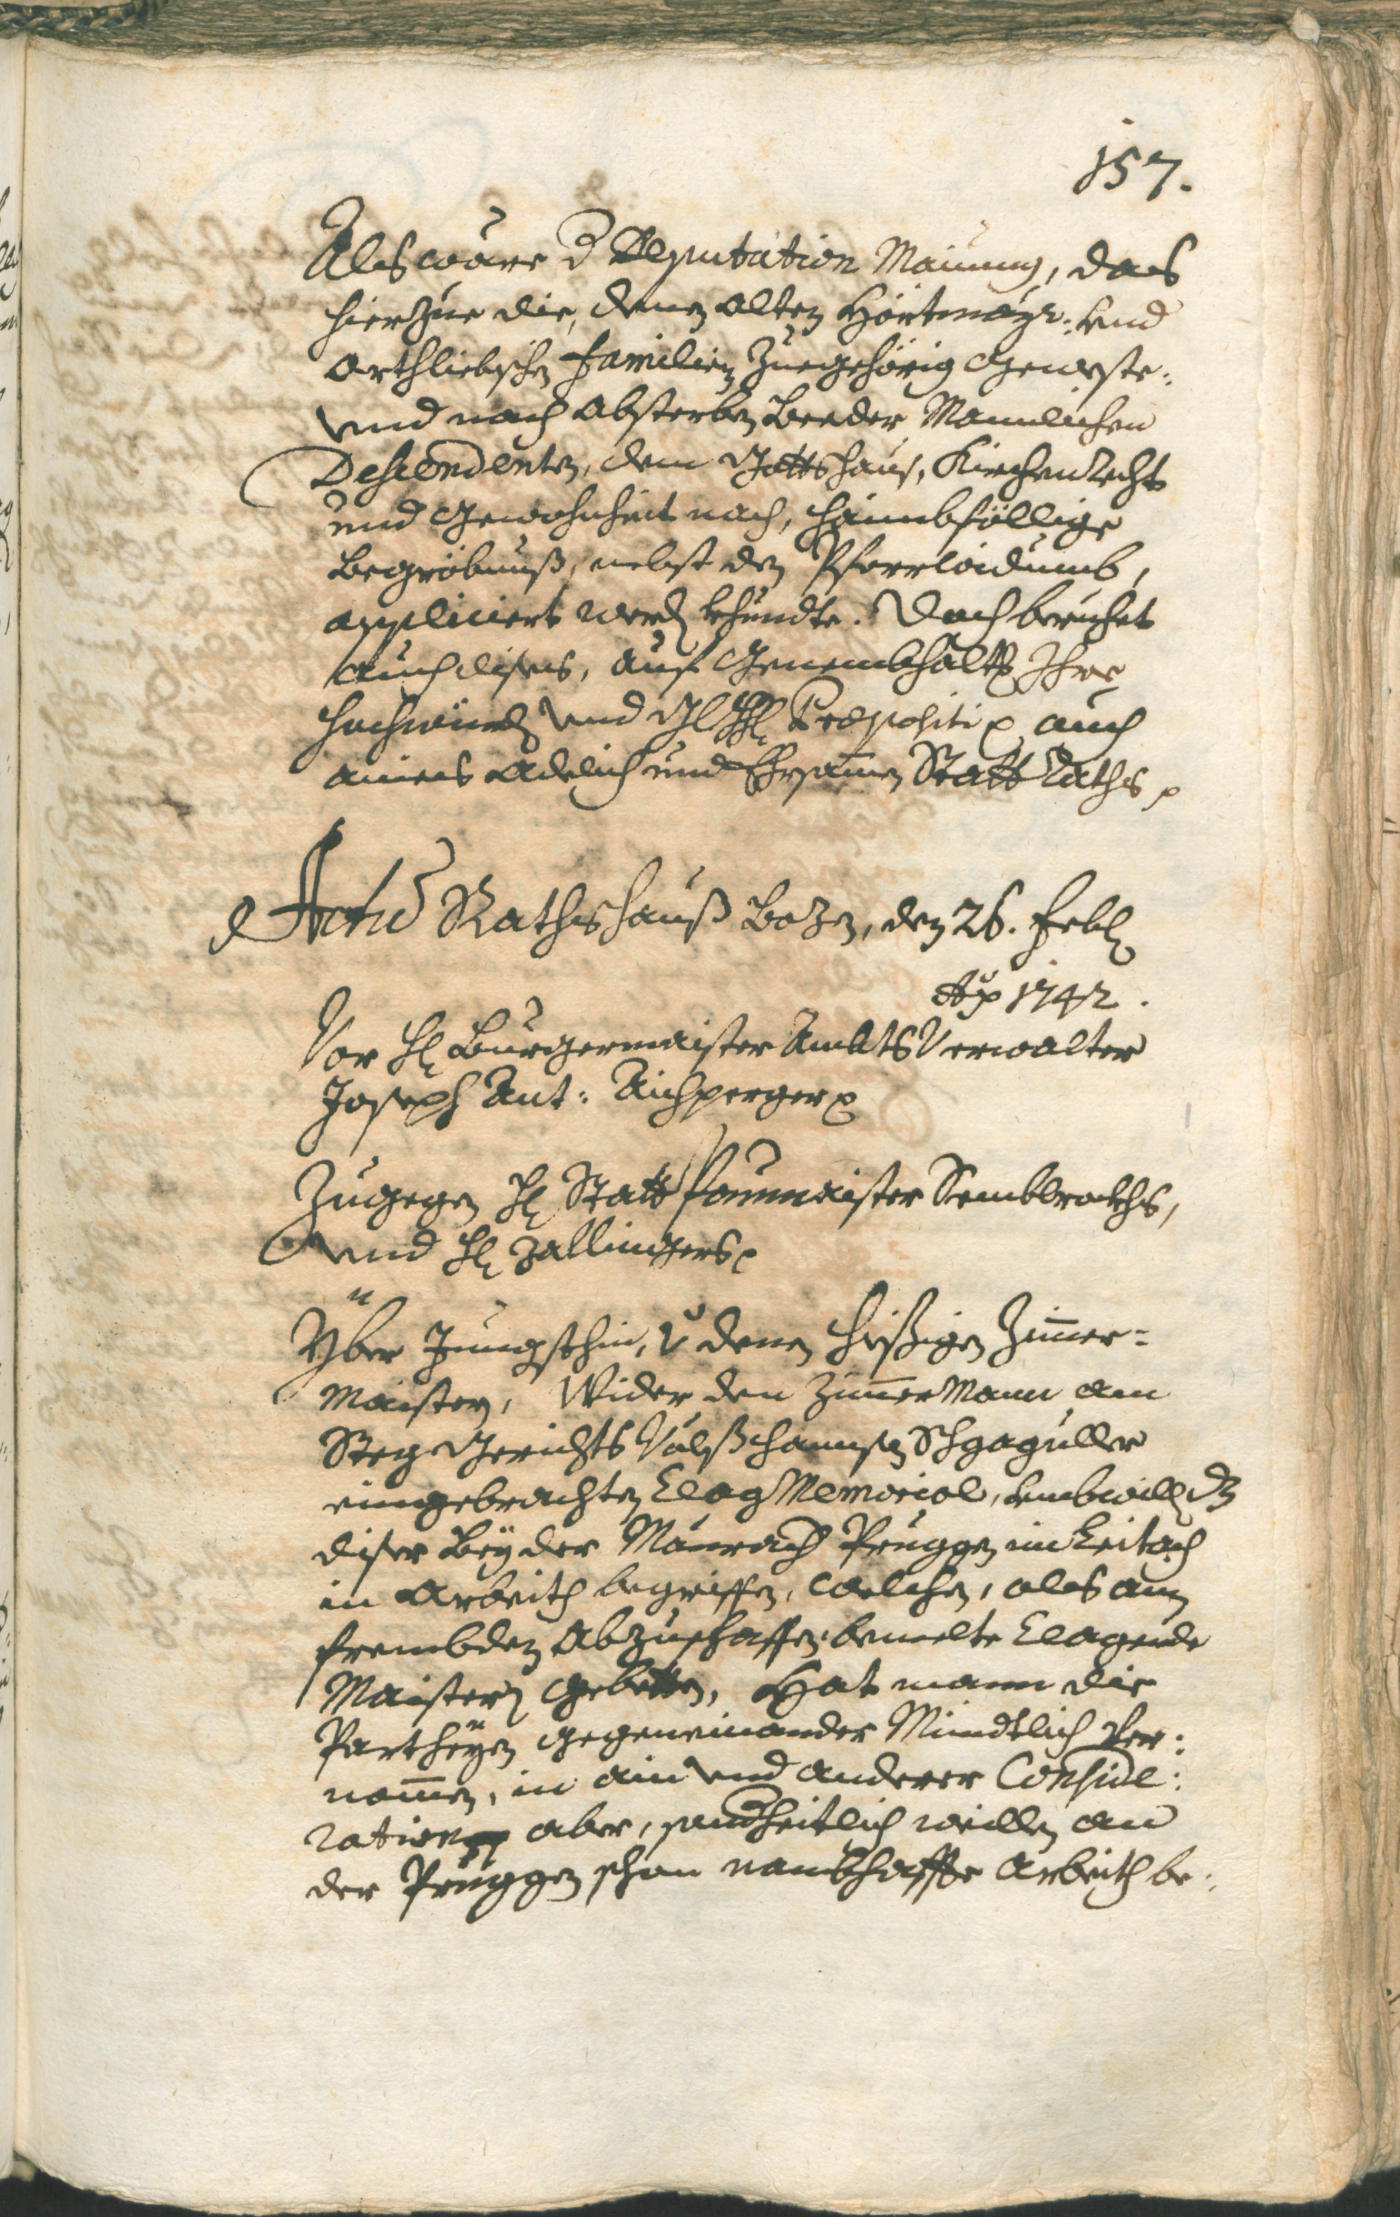 157.
Als ware d Deputation Mainung, das
hierzue die, denen alten Hörtmayr: und
Orthliebischen Familien zuegehörig geweste:
und nach absterben beeder Mannlichen
Descendenten, dem Gottshaus, Kirchen Recht
und Gewohnheit nach, haimbföllige
Begröbnuß, nebst den Pfarrwidumb,
appliciert werden khundte. Doch beruehet
auch dises, auf Genembhalt Ihro
hochwürden und H Praepositi auch
aines Adelich und Ehrsamen Statt Raths
Actum Rathshauß Bozen, den 26. Feb
Ao 1742.
Vor H Burgermaister Ambts Verwalter
Joseph Ant: Aichperger
Zugegen H Statt Paumaister
und H Zallingers
Yber Jungsthin, v denen hießigen Zimmer=
Maistern, Wider den Zimmer Mann am
Steg Gerichts
eingebrachten Clag Memorial, umbwillen dz
diser bey der Prugges im Eitach
in Arbeith begriffen, welchen, als ain
frembden abzuschaffen bemelte Clagende
Maistern gebetten, Hat mann die
Partheyen gegeneinander Mündtlich Ver:
nommen, in ain und anderer Conside:
ration aber, sonderheitlich weillen an
der Pruggen schon nambhaffte Arbeith be: